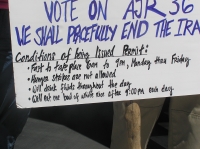 VOTE ON AJR 36
WE SHALL PACEFULLY END THE IRA
Conditions of being Issued Permit:
• Fast to take place 8am to 9pm, Monday thru Friday
• Hunger strikes are not allowed
• Will drink fluids throughout the day
• Will eat one bowl of white rice after 9:00 pm each day.